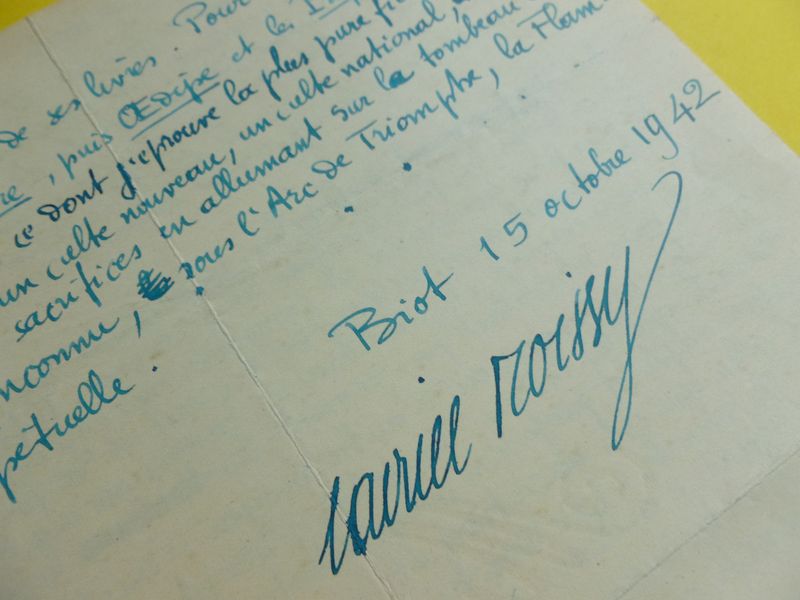 de ses livres. Pour
re, puis Œdipe et le
ce dont j'éprouve la plus pure
un culte nouveau, un culte national,
sacrifices en allumant sur la tombeau
nconnu, sous l'Arc de Triomphe, la Flam
pétuelle.
Biot 15 octobre 1942
Gabriel Boissy